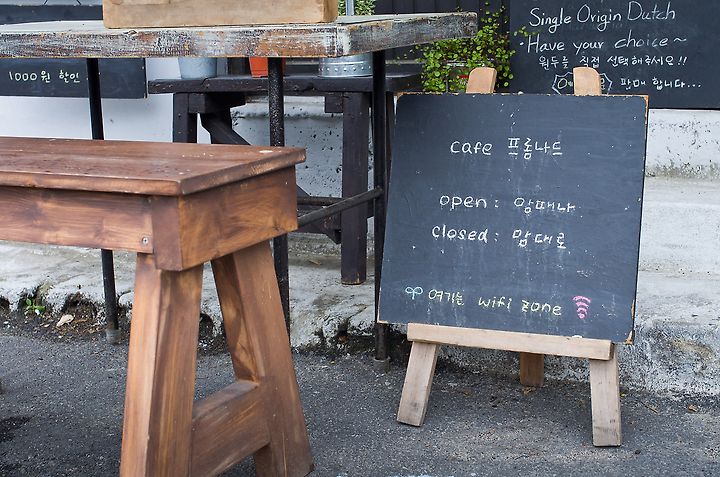 1000원 할인
Single Origin Dutch
Have your choice~
원두를 직접 선택해주세요!!
판매 합니다...
cafe 프롬나드
open : 암때나
closed : 맘대로
여기는 wifi zone